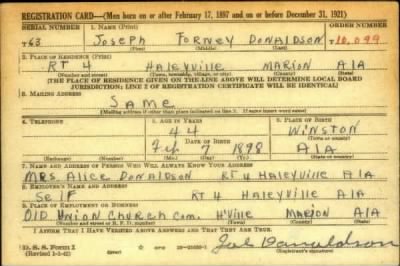 REGISTRATION CARD—(Men born on or after February 17, 1897 and on or before December 31, 1921)
SERIAL NUMBER 1. NAME (Print) ORDER NUMBER
T 63 Joseph Forney Donaldson T10,099
(First) (Middle) (Last)
2. PLACE OF RESIDENCE (Print)
RT 4 Haleyville Marion Ala
(Number and street) (Town, township, village, or city) (County) (State)
[THE PLACE OF RESIDENCE GIVEN ON THE LINE ABOVE WILL DETERMINE LOCAL BOARD
JURISDICTION; LINE 2 OF REGISTRATION CERTIFICATE WILL BE IDENTICAL]
3. MAILING ADDRESS
Same
[Mailing address if other than place indicated on line 2. If same insert word same]
4. TELEPHONE 5. AGE IN YEARS 6. PLACE OF BIRTH
44 Winston
DATE OF BIRTH (Town or county)
7 1898 Ala
(Exchange) (Number) (Mo.) (Day) (Yr.) (State or country)
7. NAME AND ADDRESS OF PERSON WHO WILL ALWAYS KNOW YOUR ADDRESS
Mrs. Alice Donaldson RT 4 Haleyville Ala
8. EMPLOYER'S NAME AND ADDRESS
Self RT 4 Haleyville Ala
9. PLACE OF EMPLOYMENT OR BUSINESS
Old Union Church Com. H'ville Marion Ala
(Number and street or R. F. D. number) (Town) (County) (State)
I AFFIRM THAT I HAVE VERIFIED ABOVE ANSWERS AND THAT THEY ARE TRUE.
D. S. S. Form 1
(Revised 1-1-42) Donaldson
(Registrant's signature)